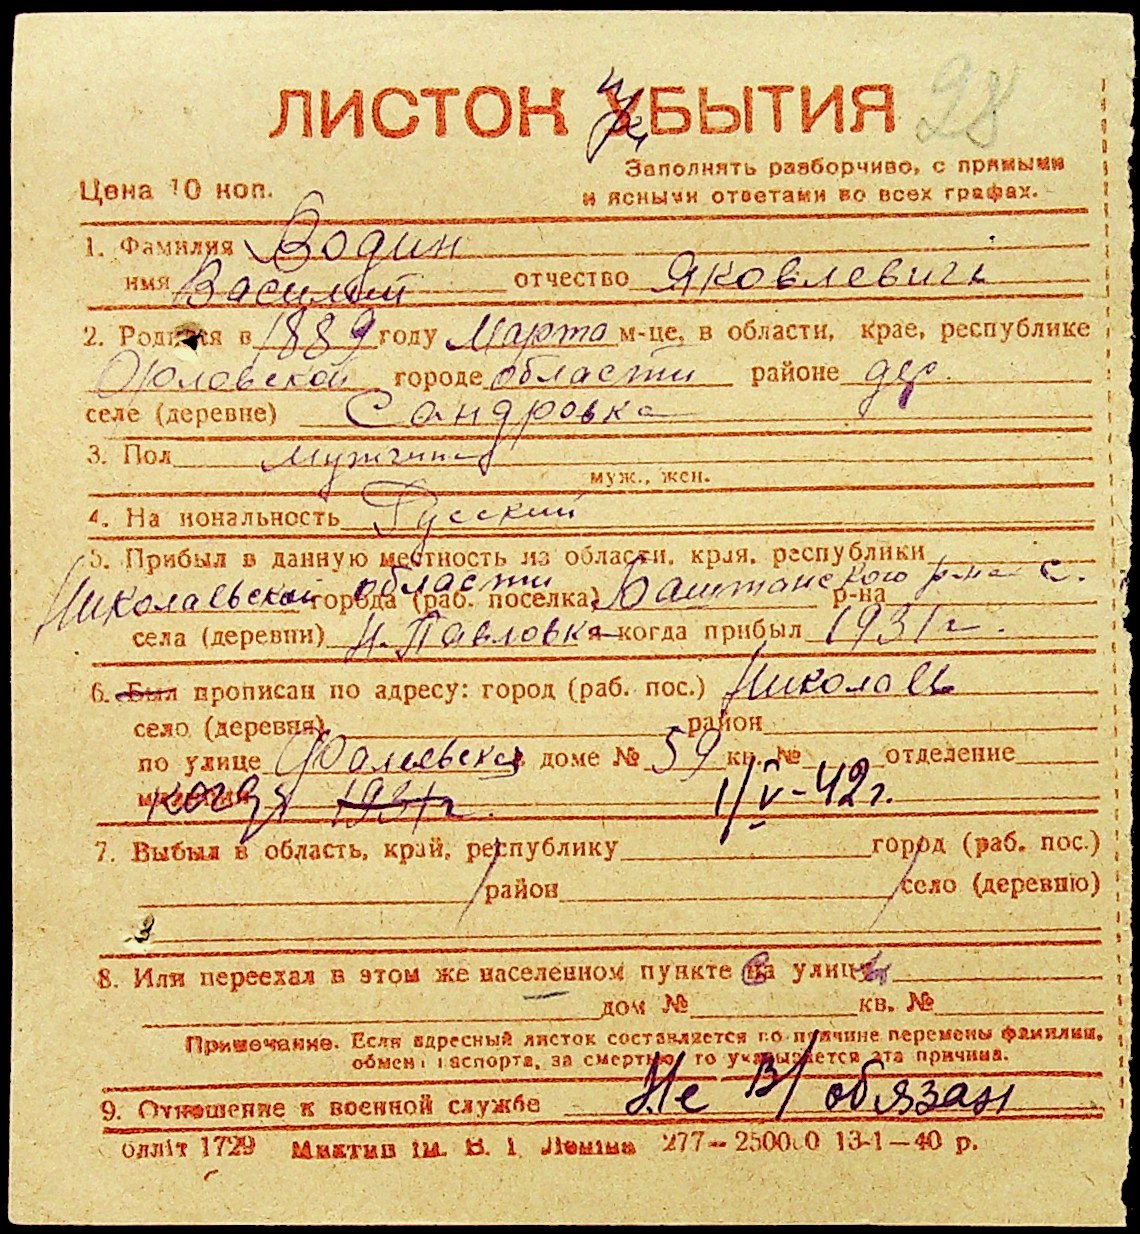 ЛИСТОК УБЫТИЯ 28
Заполнять разборчиво, с прямыми
Цена 10 коп. и ясными ответами во всех графах.
1. Фамилия Водин
имя Василий отчество Яковлевич
2. Родился в 1889 году Марта м-це, в области, крае, республике
Орловской городе области районе дер.
селе (деревне) Сандровка
3. Пол мужчина
муж., жен.
4. Национальность Русский
5. Прибыл в данную местность из области, края, республики
Николаевской области города (раб. поселка) Баштанского р-на с. р-на
села (деревни) Н. Павловка когда прибыл 1931 г.
6. Был прописан по адресу: город (раб. пос.) Николаев
село (деревня) район
по улице Фалеевская доме № 59 кв. № отделение
когда 1931 г. 1/V-42 г.
7. Выбыл в область, край, республику город (раб. пос.)
район село (деревню)
8. Или переехал в этом же населенном пункте на улицу
дом № кв. №
Примечание. Если адресный листок составляется по причине перемены фамилии,
обмена паспорта, за смертью, то указывается эта причина.
9. Отношение к военной службе Не в/обязан
Облліт 1729 Миктип ім. В. І. Леніна 277—250000 13-1—40 р.